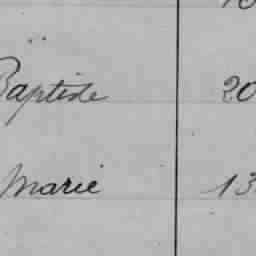 Baptiste 20
Marie 13